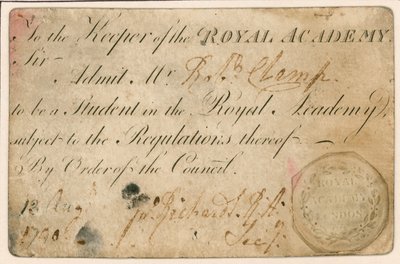 To the Keeper of the ROYAL ACADEMY.
Sir
Admit Mr.
to be a Student in the Royal Academy,
subject to the Regulations thereof
By Order of the Council.
13 Aug
Jn Richards R.A.
Secy.
ROYAL
ACADEMY
LONDON